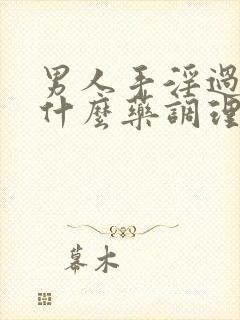 男人手淫過
什麼藥調理
幕木